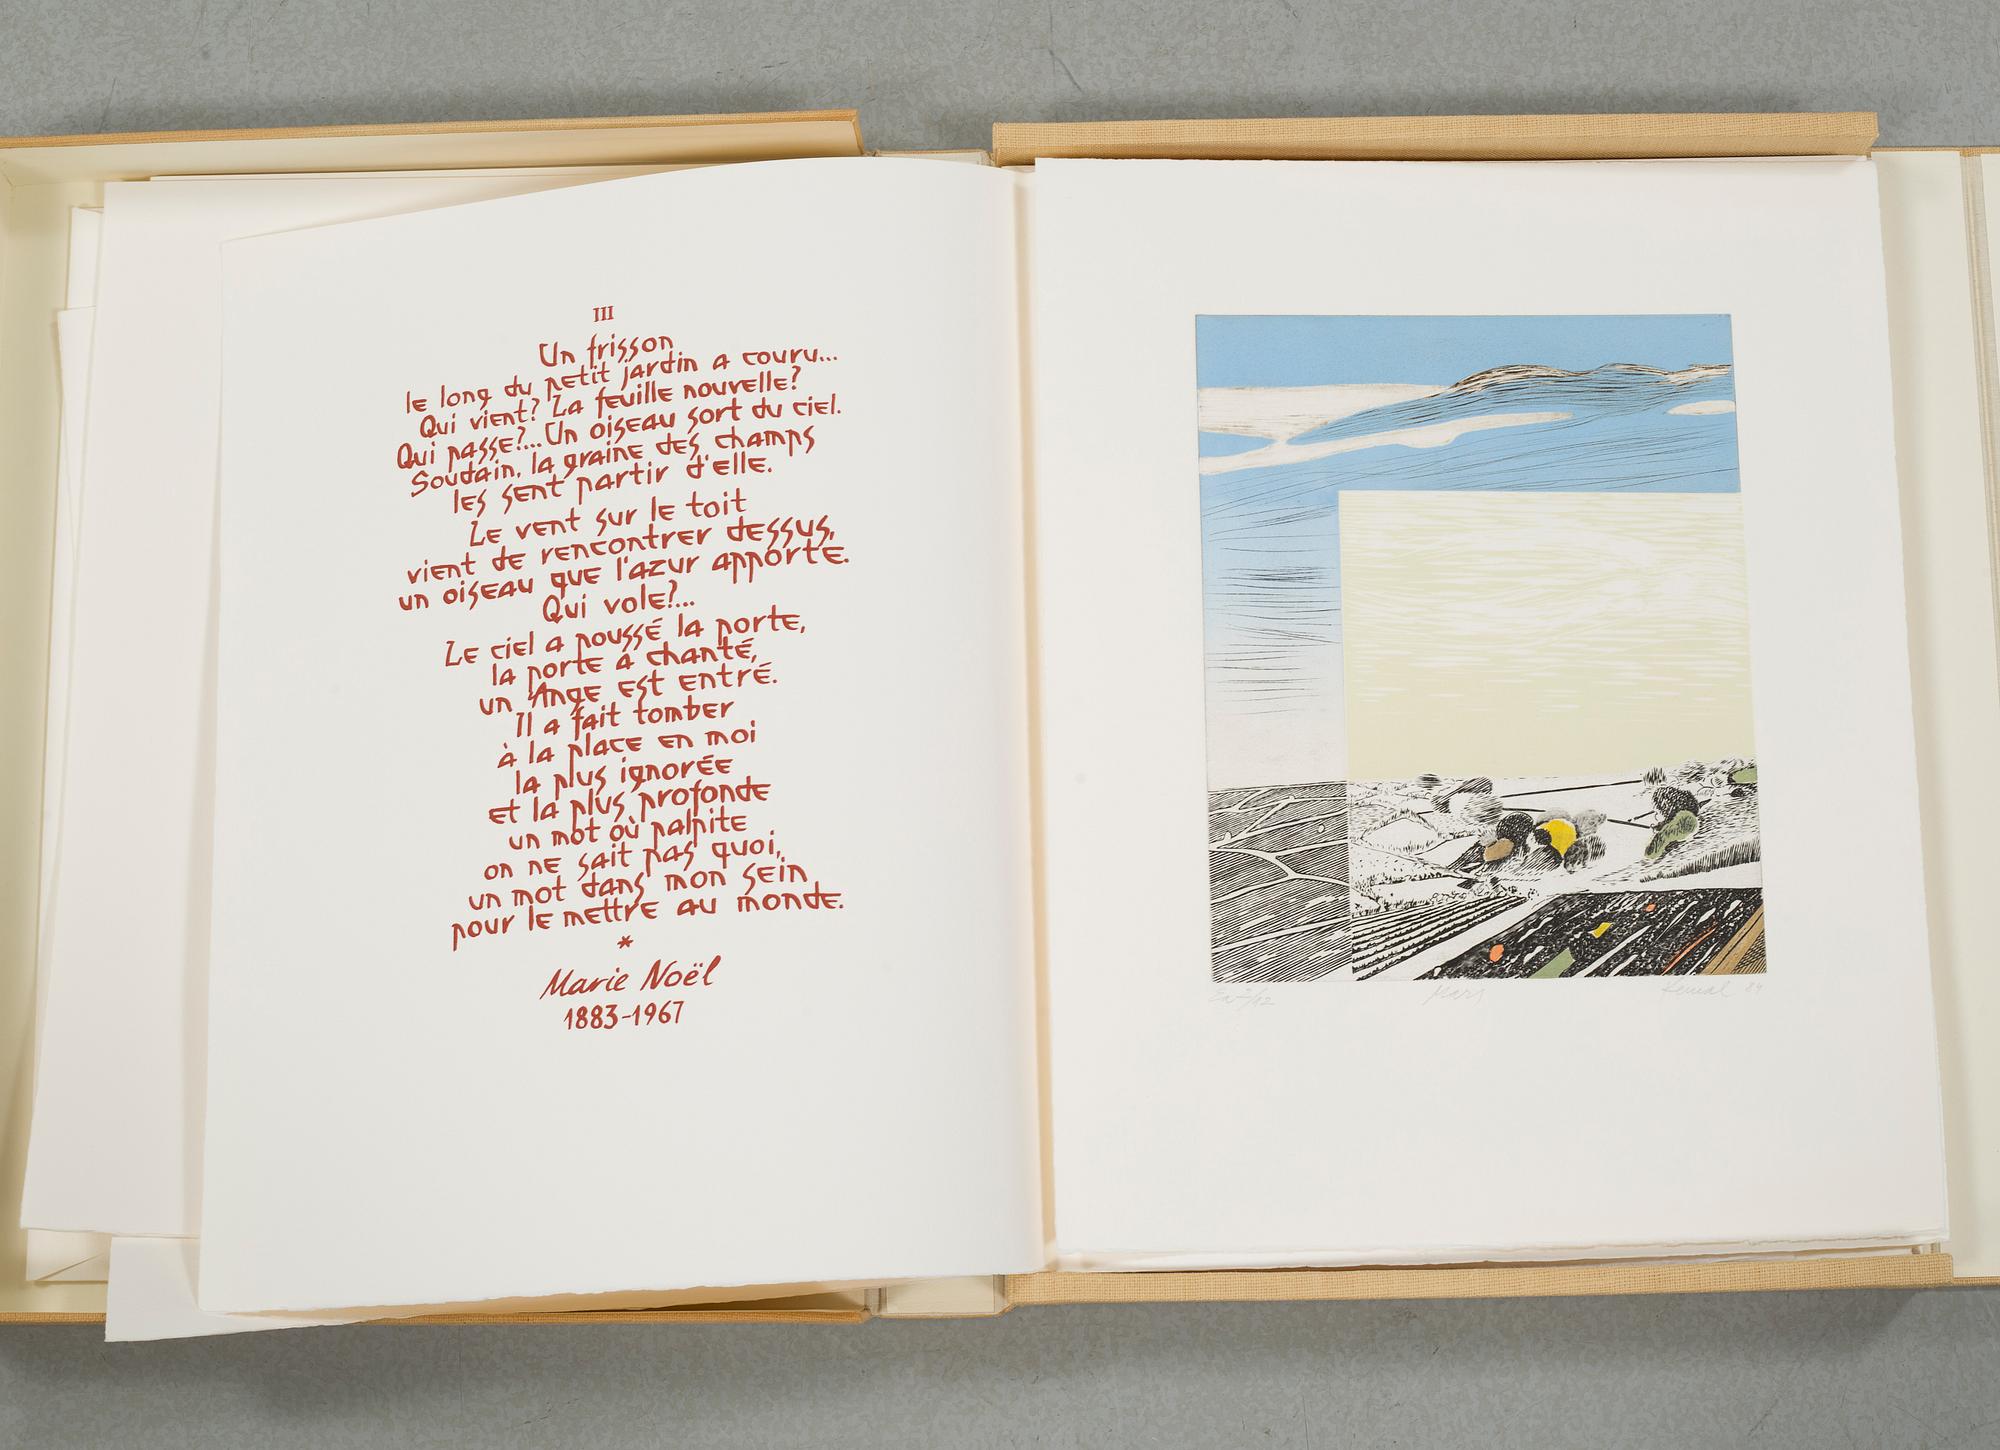 III
Un frisson
le long du petit jardin a couru...
Qui vient? La feuille nouvelle?
Qui passe?...Un oiseau sort du ciel.
Soudain, la graine des champs
les sent partir d'elle.
Le vent sur le toit
vient de rencontrer dessus,
un oiseau que l'azur apporte.
Qui vole?...
Le ciel a poussé la porte,
la porte a chanté,
un Ange est entré.
Il a fait tomber
à la place en moi
la plus ignorée
et la plus profonde
un mot où palpite
on ne sait pas quoi,
un mot dans mon sein
pour le mettre au monde.
*
Marie Noël
1883-1967
Mars
Kemal 84